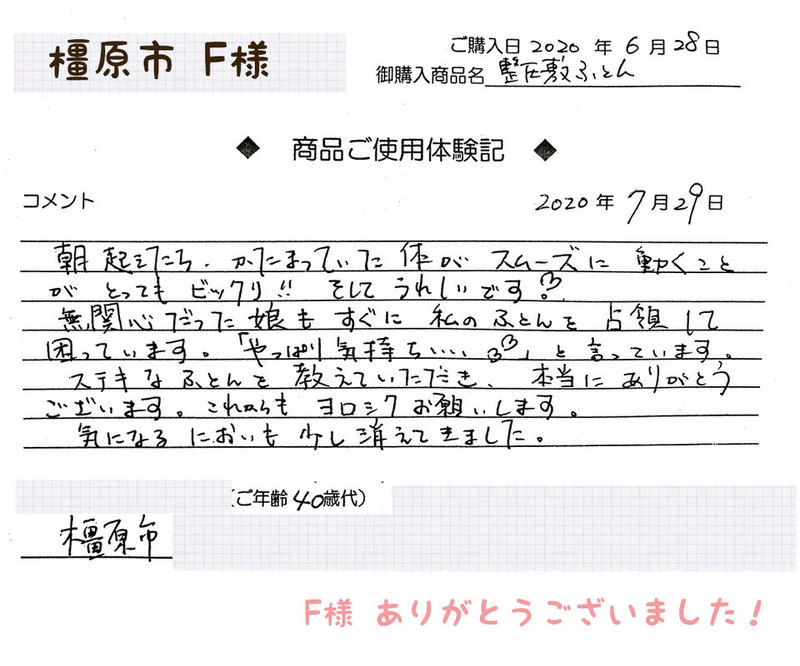 橿原市 F様
ご購入日 2020 年 6 月 28 日
御購入商品名 整圧敷ふとん
◆ 商品ご使用体験記 ◆
コメント
2020 年 7 月 29 日
朝 起きたら、かたまっていた 体が スムーズに 動くこと
が とっても ビックリ!! そして うれしいです
無関心だった 娘も すぐに 私の ふとんを 占領して
困っています。「やっぱり 気持ちいい」と 言っています。
ステキな ふとんを 教えていただき、本当に ありがとう
ございます。これからも ヨロシク お願いします。
気になる においも 少し 消えてきました。
(ご年齢 40歳代)
橿原市
F様 ありがとうございました!